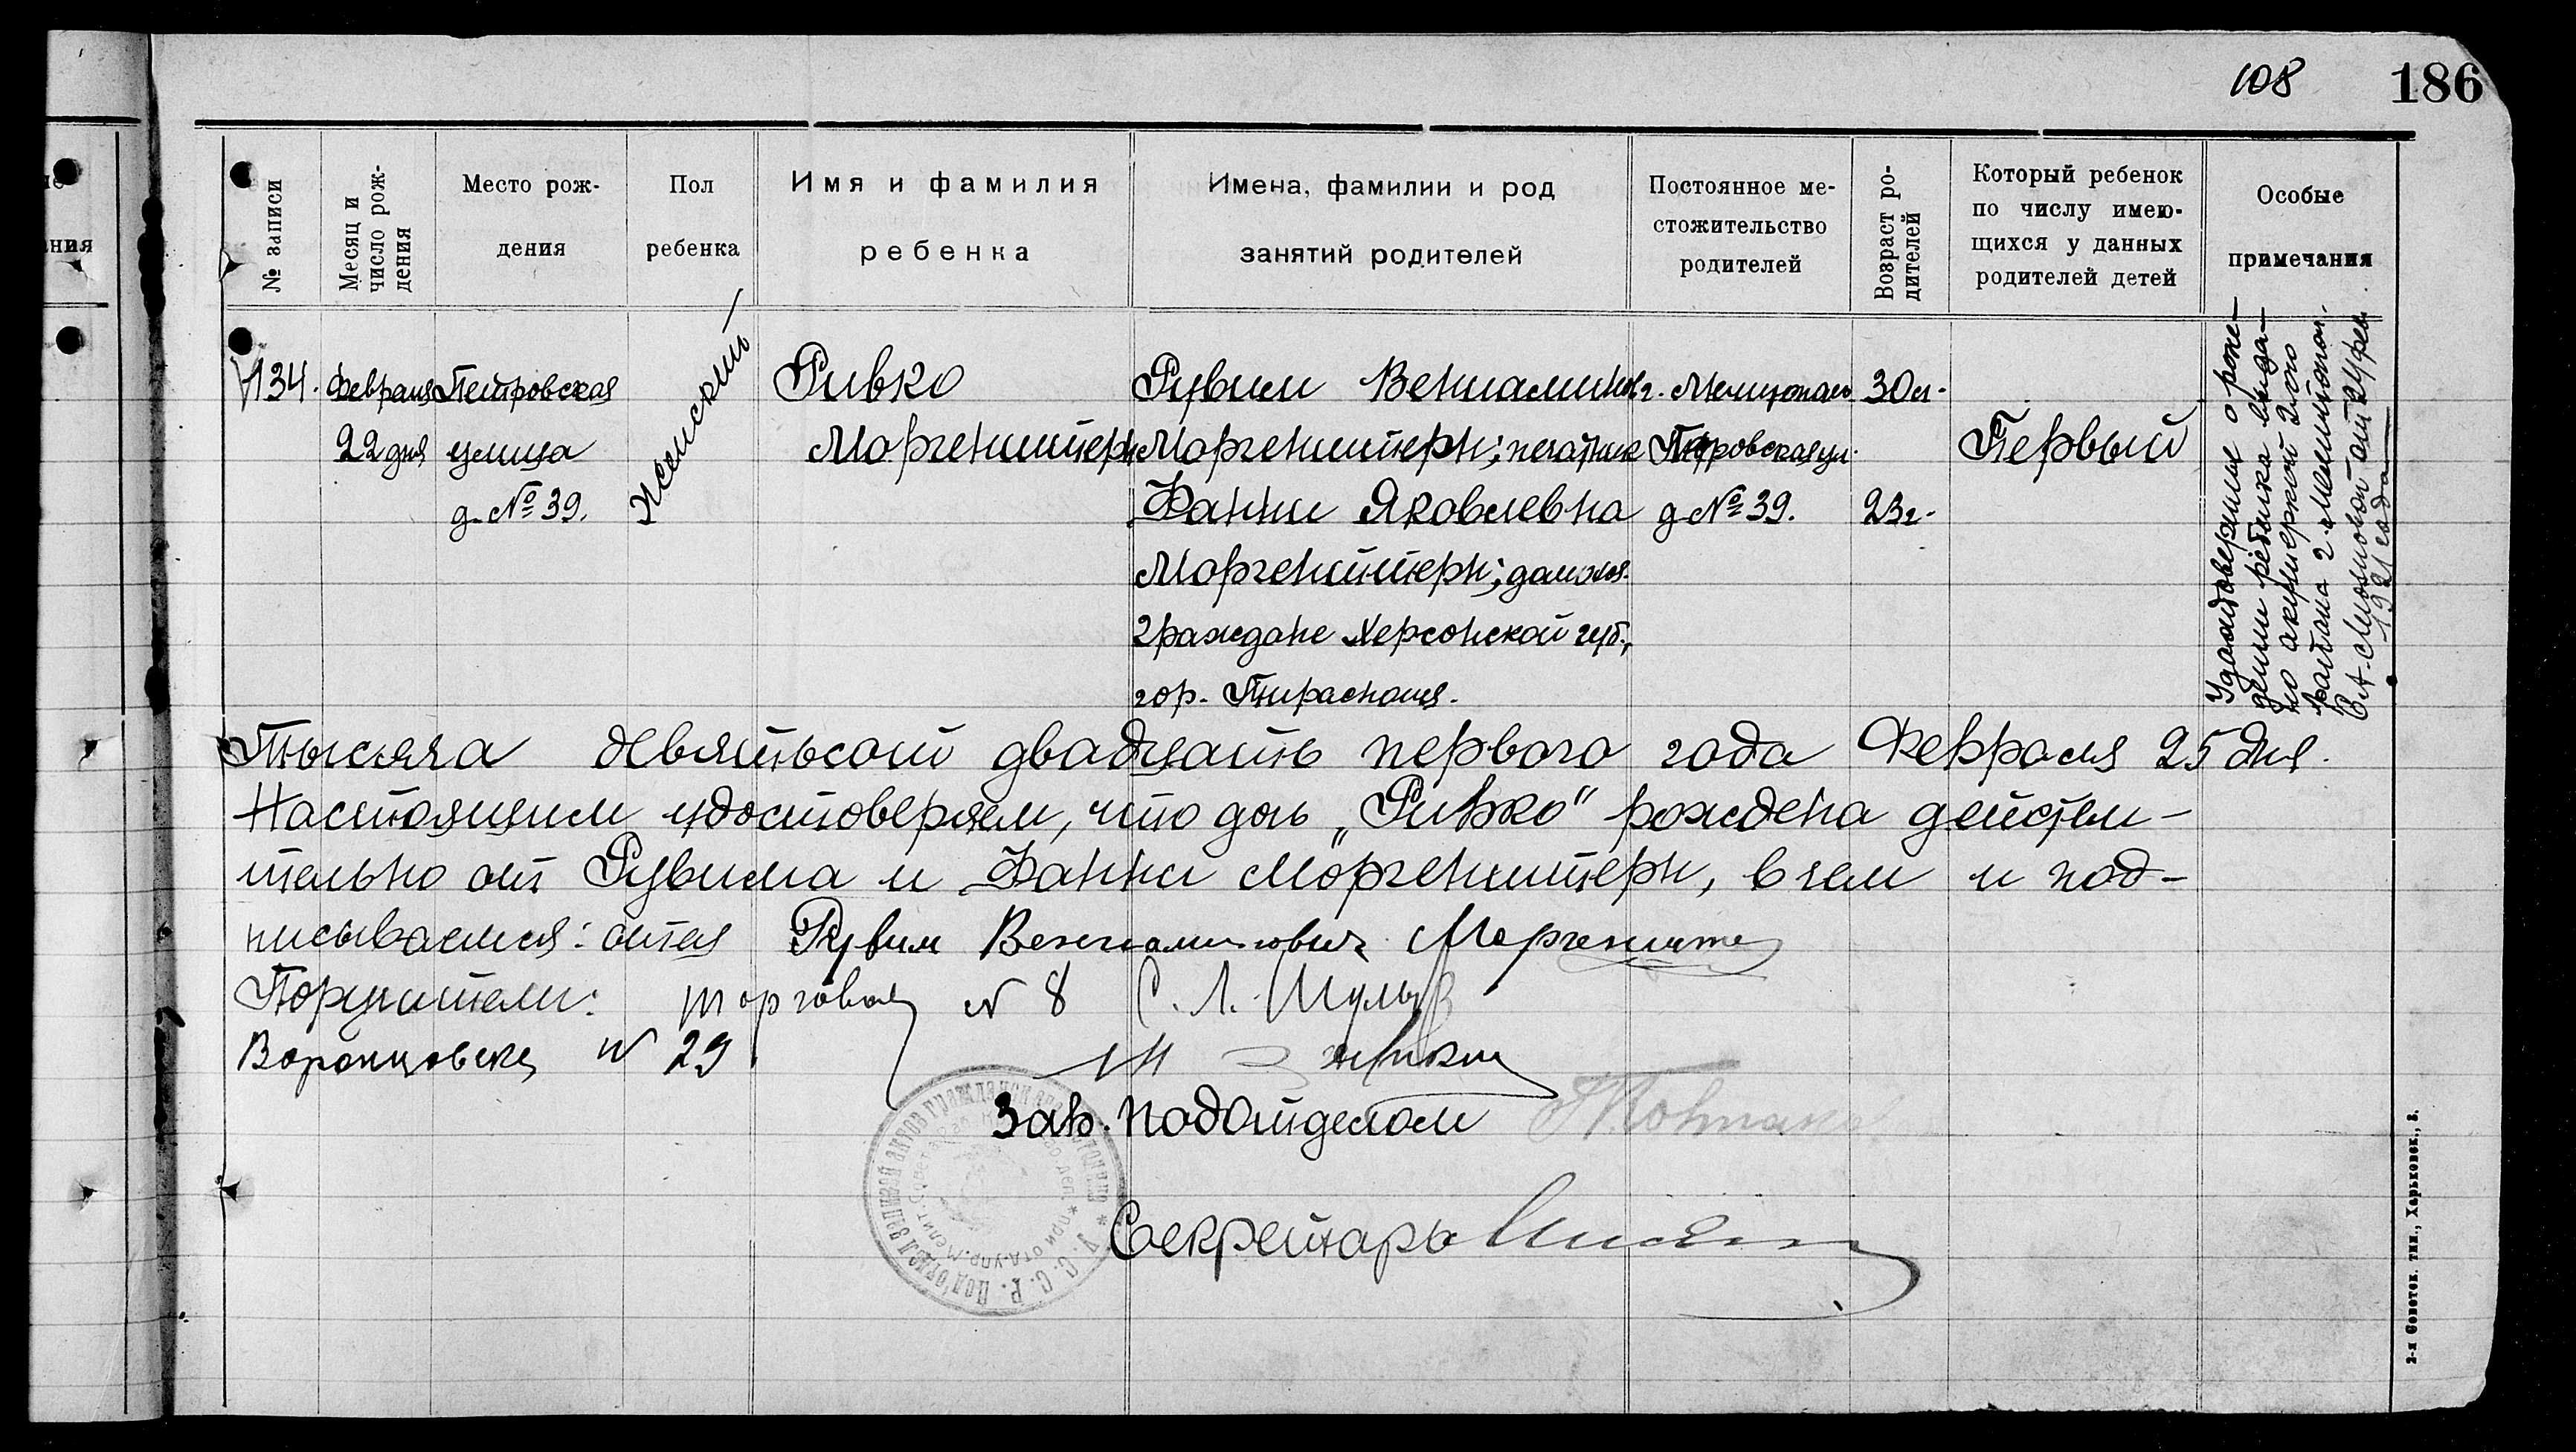 108 186
ния
№ записи
Месяц и
число рож-
дения
Место рож-
дения
Пол
ребенка
Имя и фамилия
ребенка
Имена, фамилии и род
занятий родителей
Постоянное ме-
стожительство
родителей
Возраст ро-
дителей
Который ребенок
по числу имею-
щихся у данных
родителей детей
Особые
примечания
134.
Февраля
22 дня
Петровская
улица
д. № 39.
Женский
Ривко
Моргенштерн
Рувим Вениаминов.
Моргенштерн; печатник
Фанни Яковлевна
Моргенштерн; домохоз.
граждане Херсонской губ.,
гор. Тирасполя.
г. Мелитополь
Петровская ул.
д № 39.
30 л.
23 г.
Первый
Удостоверение о рож-
дении ребенка выда-
но акушеркой 2-го
района г. Мелитополя
от 24 фев.
1921 года
Тысяча девятьсот двадцать первого года Февраля 25 дня.
Настоящим удостоверяем, что дочь „Ривко" рождена действи-
тельно от Рувима и Фанни Моргенштерн, в чем и под-
писываемся: отец Рувим Вениаминович Моргенште
Поручители: Торговая № 8 С. Л. Шульц
Воронцовская № 29
Зав. Подотделом
Секретарь
У. С. С. Р. Под'отдел записей актов гражданского состояния *
при отд. упр. Мелит. Совета
2-я Советск. тип., Харьковск., 3.